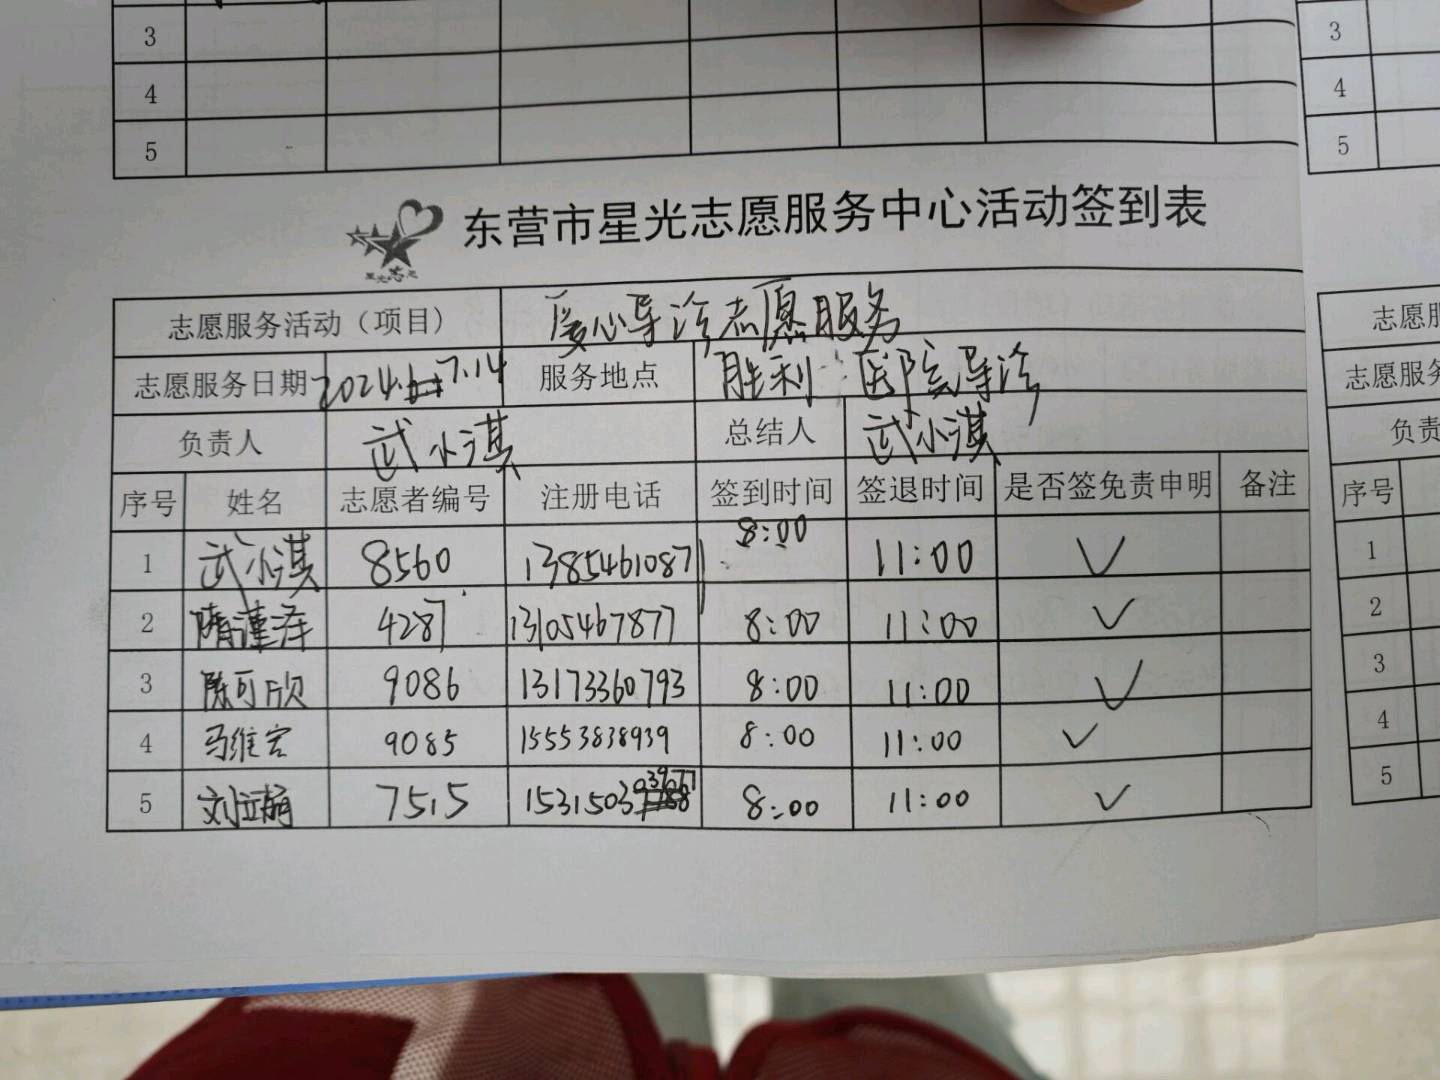 3
4
5
东营市星光志愿服务中心活动签到表
志愿服务活动（项目） 爱心导诊志愿服务
志愿服务日期 2024. 7.14 服务地点 胜利医院导诊
负责人 武小淇 总结人 武小淇
序号 姓名 志愿者编号 注册电话 签到时间 签退时间 是否签免责申明 备注
1 武小淇 8560 13854610871 8:00 11:00 ✓
2 隋谨泽 4287 13105467877 8:00 11:00 ✓
3 陈可欣 9086 13173360793 8:00 11:00 ✓
4 马维宏 9085 15553838939 8:00 11:00 ✓
5 7515 1531503 8:00 11:00 ✓
3
4
5
志愿服
志愿服务
负责
序号
1
2
3
4
5